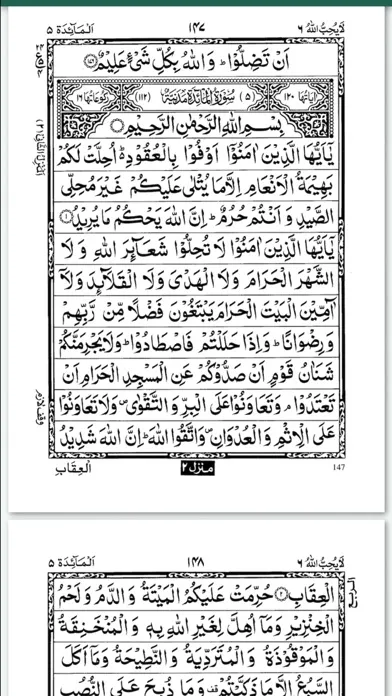 لَا يُحِبُّ اللّٰهُ ٦ ١٤٧ اَلْمَآئِدَة ٥
اَنْ تَضِلُّوْا ؕ وَ اللّٰهُ بِكُلِّ شَیْءٍ عَلِیْمٌ ۟
اٰیَاتُهَا ١٢٠ (٥) سُوْرَةُ الْمَآئِدَةِ مَدَنِیَّةٌ (١١٢) رُكُوْعَاتُهَا ١٦
بِسْمِ اللّٰهِ الرَّحْمٰنِ الرَّحِیْمِ
یٰۤاَیُّهَا الَّذِیْنَ اٰمَنُوْۤا اَوْفُوْا بِالْعُقُوْدِ ؕ اُحِلَّتْ لَكُمْ
بَهِیْمَةُ الْاَنْعَامِ اِلَّا مَا یُتْلٰی عَلَیْكُمْ غَیْرَ مُحِلِّی
الصَّیْدِ وَ اَنْتُمْ حُرُمٌ ؕ اِنَّ اللّٰهَ یَحْكُمُ مَا یُرِیْدُ ۟١
یٰۤاَیُّهَا الَّذِیْنَ اٰمَنُوْا لَا تُحِلُّوْا شَعَآئِرَ اللّٰهِ وَ لَا
الشَّهْرَ الْحَرَامَ وَ لَا الْهَدْیَ وَ لَا الْقَلَآئِدَ وَ لَاۤ
آٰمِّیْنَ الْبَیْتَ الْحَرَامَ یَبْتَغُوْنَ فَضْلًا مِّنْ رَّبِّهِمْ
وَ رِضْوَانًا ؕ وَ اِذَا حَلَلْتُمْ فَاصْطَادُوْا ؕ وَ لَا یَجْرِمَنَّكُمْ
شَنَاٰنُ قَوْمٍ اَنْ صَدُّوْكُمْ عَنِ الْمَسْجِدِ الْحَرَامِ اَنْ
تَعْتَدُوْا ۘ وَ تَعَاوَنُوْا عَلَی الْبِرِّ وَ التَّقْوٰی ۪ وَ لَا تَعَاوَنُوْا
عَلَی الْاِثْمِ وَ الْعُدْوَانِ ۪ وَ اتَّقُوا اللّٰهَ ؕ اِنَّ اللّٰهَ شَدِیْدُ
147 منزل ٢ الْعِقَابِ
لَا يُحِبُّ اللّٰهُ ٦ ١٤٨ اَلْمَآئِدَة ٥
الْعِقَابِ ۟٢ حُرِّمَتْ عَلَیْكُمُ الْمَیْتَةُ وَ الدَّمُ وَ لَحْمُ
الْخِنْزِیْرِ وَ مَاۤ اُهِلَّ لِغَیْرِ اللّٰهِ بِهٖ وَ الْمُنْخَنِقَةُ
وَ الْمَوْقُوْذَةُ وَ الْمُتَرَدِّیَةُ وَ النَّطِیْحَةُ وَ مَاۤ اَكَلَ
السَّبُعُ اِلَّا مَا ذَكَّیْتُمْ ۫ وَ مَا ذُبِحَ عَلَی النُّصُبِ